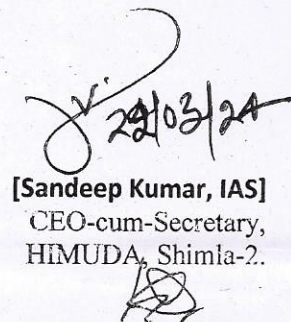 22/03/24
[Sandeep Kumar, IAS]
CEO-cum-Secretary,
HIMUDA, Shimla-2.